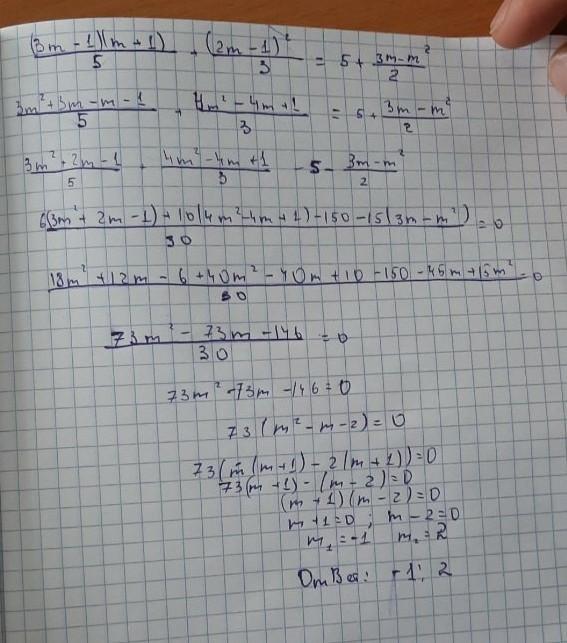 (3m - 1)(m + 1)/5 + (2m - 1)²/3 = 5 + 3m - m²/2
3m² + 3m - m - 1/5 + 4m² - 4m + 1/3 = 5 + 3m - m²/2
3m² + 2m - 1/5 + 4m² - 4m + 1/3 - 5 - 3m - m²/2
6(3m² + 2m - 1) + 10(4m² - 4m + 1) - 150 - 15(3m - m²)/30 = 0
18m² + 12m - 6 + 40m² - 40m + 10 - 150 - 45m + 15m²/30 = 0
73m² - 73m - 146/30 = 0
73m² - 73m - 146 = 0
73(m² - m - 2) = 0
73(m(m + 1) - 2(m + 1)) = 0
73(m + 1) - (m - 2) = 0
(m + 1)(m - 2) = 0
m + 1 = 0 ; m - 2 = 0
m₁ = -1 m₂ = 2
Ответ: -1; 2